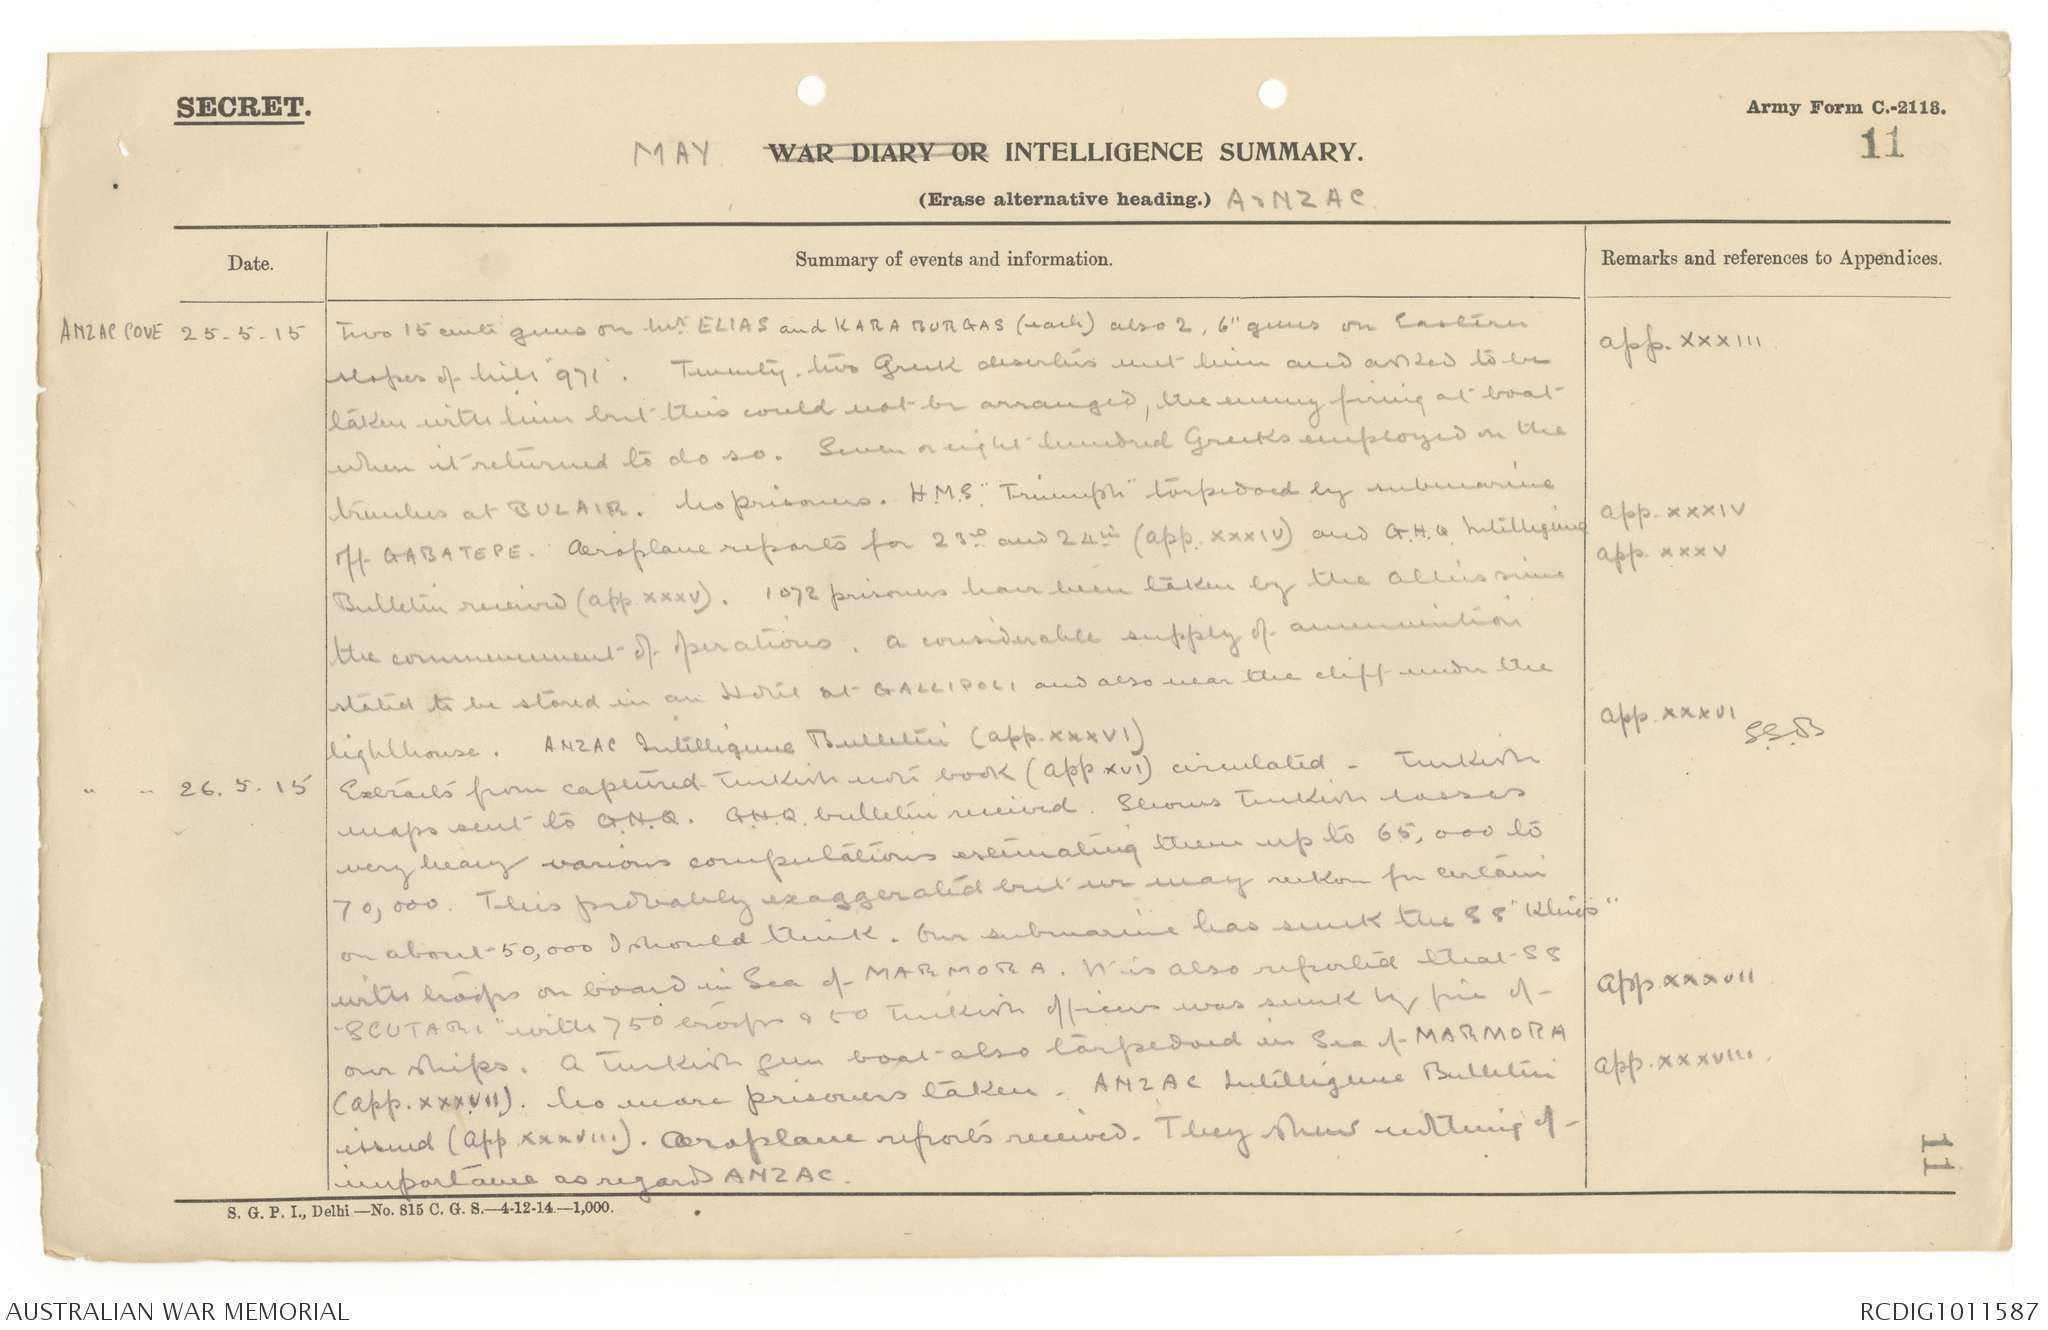 SECRET.
Army Form C.-2118.
11
MAY WAR DIARY OR INTELLIGENCE SUMMARY.
(Erase alternative heading.) ANZAC
Date.
Summary of events and information.
Remarks and references to Appendices.
ANZAC COVE 25-5-15 Two 15 centi guns on Mt. ELIAS and KARA BURGAS (each) also 2, 6" guns on Eastern
slopes of hill "971". Twenty-two Greek deserters met him and asked to be
app. XXXIII
taken with him but this could not be arranged, the enemy firing at boat
when it returned to do so. Seven or eight hundred Greeks employed on the
trenches at BULAIR. No prisoners. H.M.S "Triumph" torpedoed by submarine
off GABATEPE. Aeroplane reports for 23rd and 24th (app. XXXIV) and G.H.Q. Intelligence
app. XXXIV
app. XXXV
Bulletin received (app. XXXV). 1072 prisoners have been taken by the Allies since
the commencement of operations. A considerable supply of ammunition
stated to be stored in an Hotel at GALLIPOLI and also near the cliff under the
lighthouse. ANZAC Intelligence Bulletin (app. XXXVI)
app. XXXVI
S.S.B
" " 26.5.15 Extracts from captured Turkish note book (app XVI) circulated - Turkish
maps sent to G.H.Q. G.H.Q. bulletin received. Shows Turkish losses
very heavy various computations estimating them up to 65,000 to
70,000. This probably exaggerated but we may reckon for certain
on about 50,000 I should think. Our submarine has sunk the SS "Khios"
with troops on board in Sea of MARMORA. It is also reported that SS
"SCUTARI" with 750 troops & 50 Turkish officers was sunk by fire of
app. XXXVII
our ships. A Turkish gun boat also torpedoed in Sea of MARMORA
(app. XXXVII). No more prisoners taken - ANZAC Intelligence Bulletin
app. XXXVIII.
issued (app XXXVIII). Aeroplane reports received. They show nothing of
importance as regards ANZAC.
11
S. G. P. I., Delhi—No. 815 C. G. S.—4-12-14—1,000.
AUSTRALIAN WAR MEMORIAL
RCDIG1011587